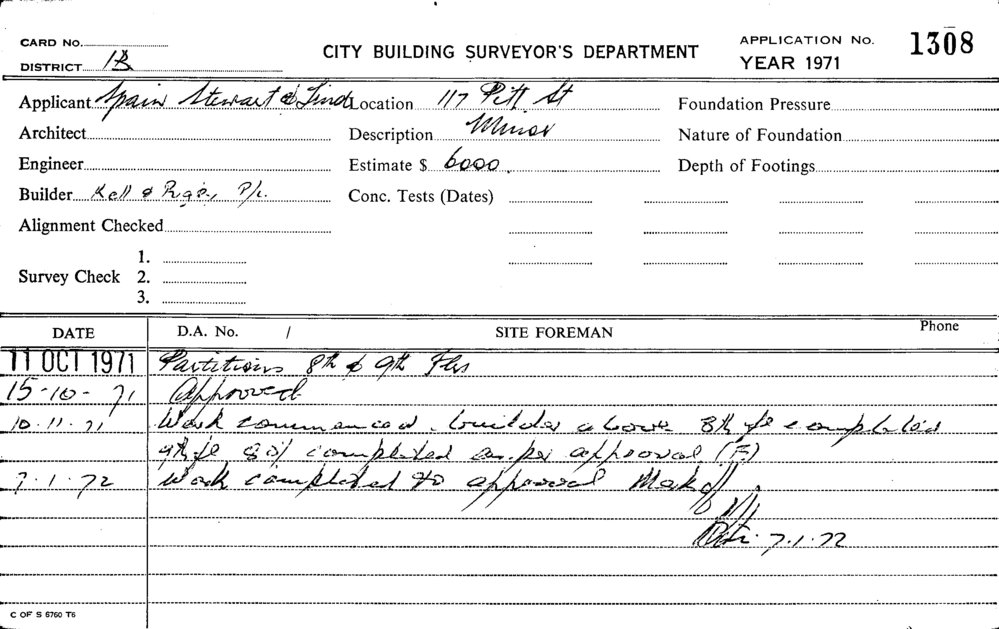 CARD No.
DISTRICT 1B
CITY BUILDING SURVEYOR'S DEPARTMENT
APPLICATION No. 1308
YEAR 1971
Applicant Spain Stewart & Lind
Location 117 Pitt St
Foundation Pressure
Architect
Description Minor
Nature of Foundation
Engineer
Estimate $ 6000
Depth of Footings
Builder Kell & Rigby P/L.
Conc. Tests (Dates)
Alignment Checked
Survey Check
1.
2.
3.
DATE
D.A. No. /
SITE FOREMAN
Phone
11 OCT 1971 Partitions 8th & 9th Flrs
15-10-71 Approved
10.11.71 Work commenced. builder above 8th fl completed
9th fl 80% completed as per approval (F)
7.1.72 Work completed to approval Mark off
7.1.72
C OF S 5760 T6